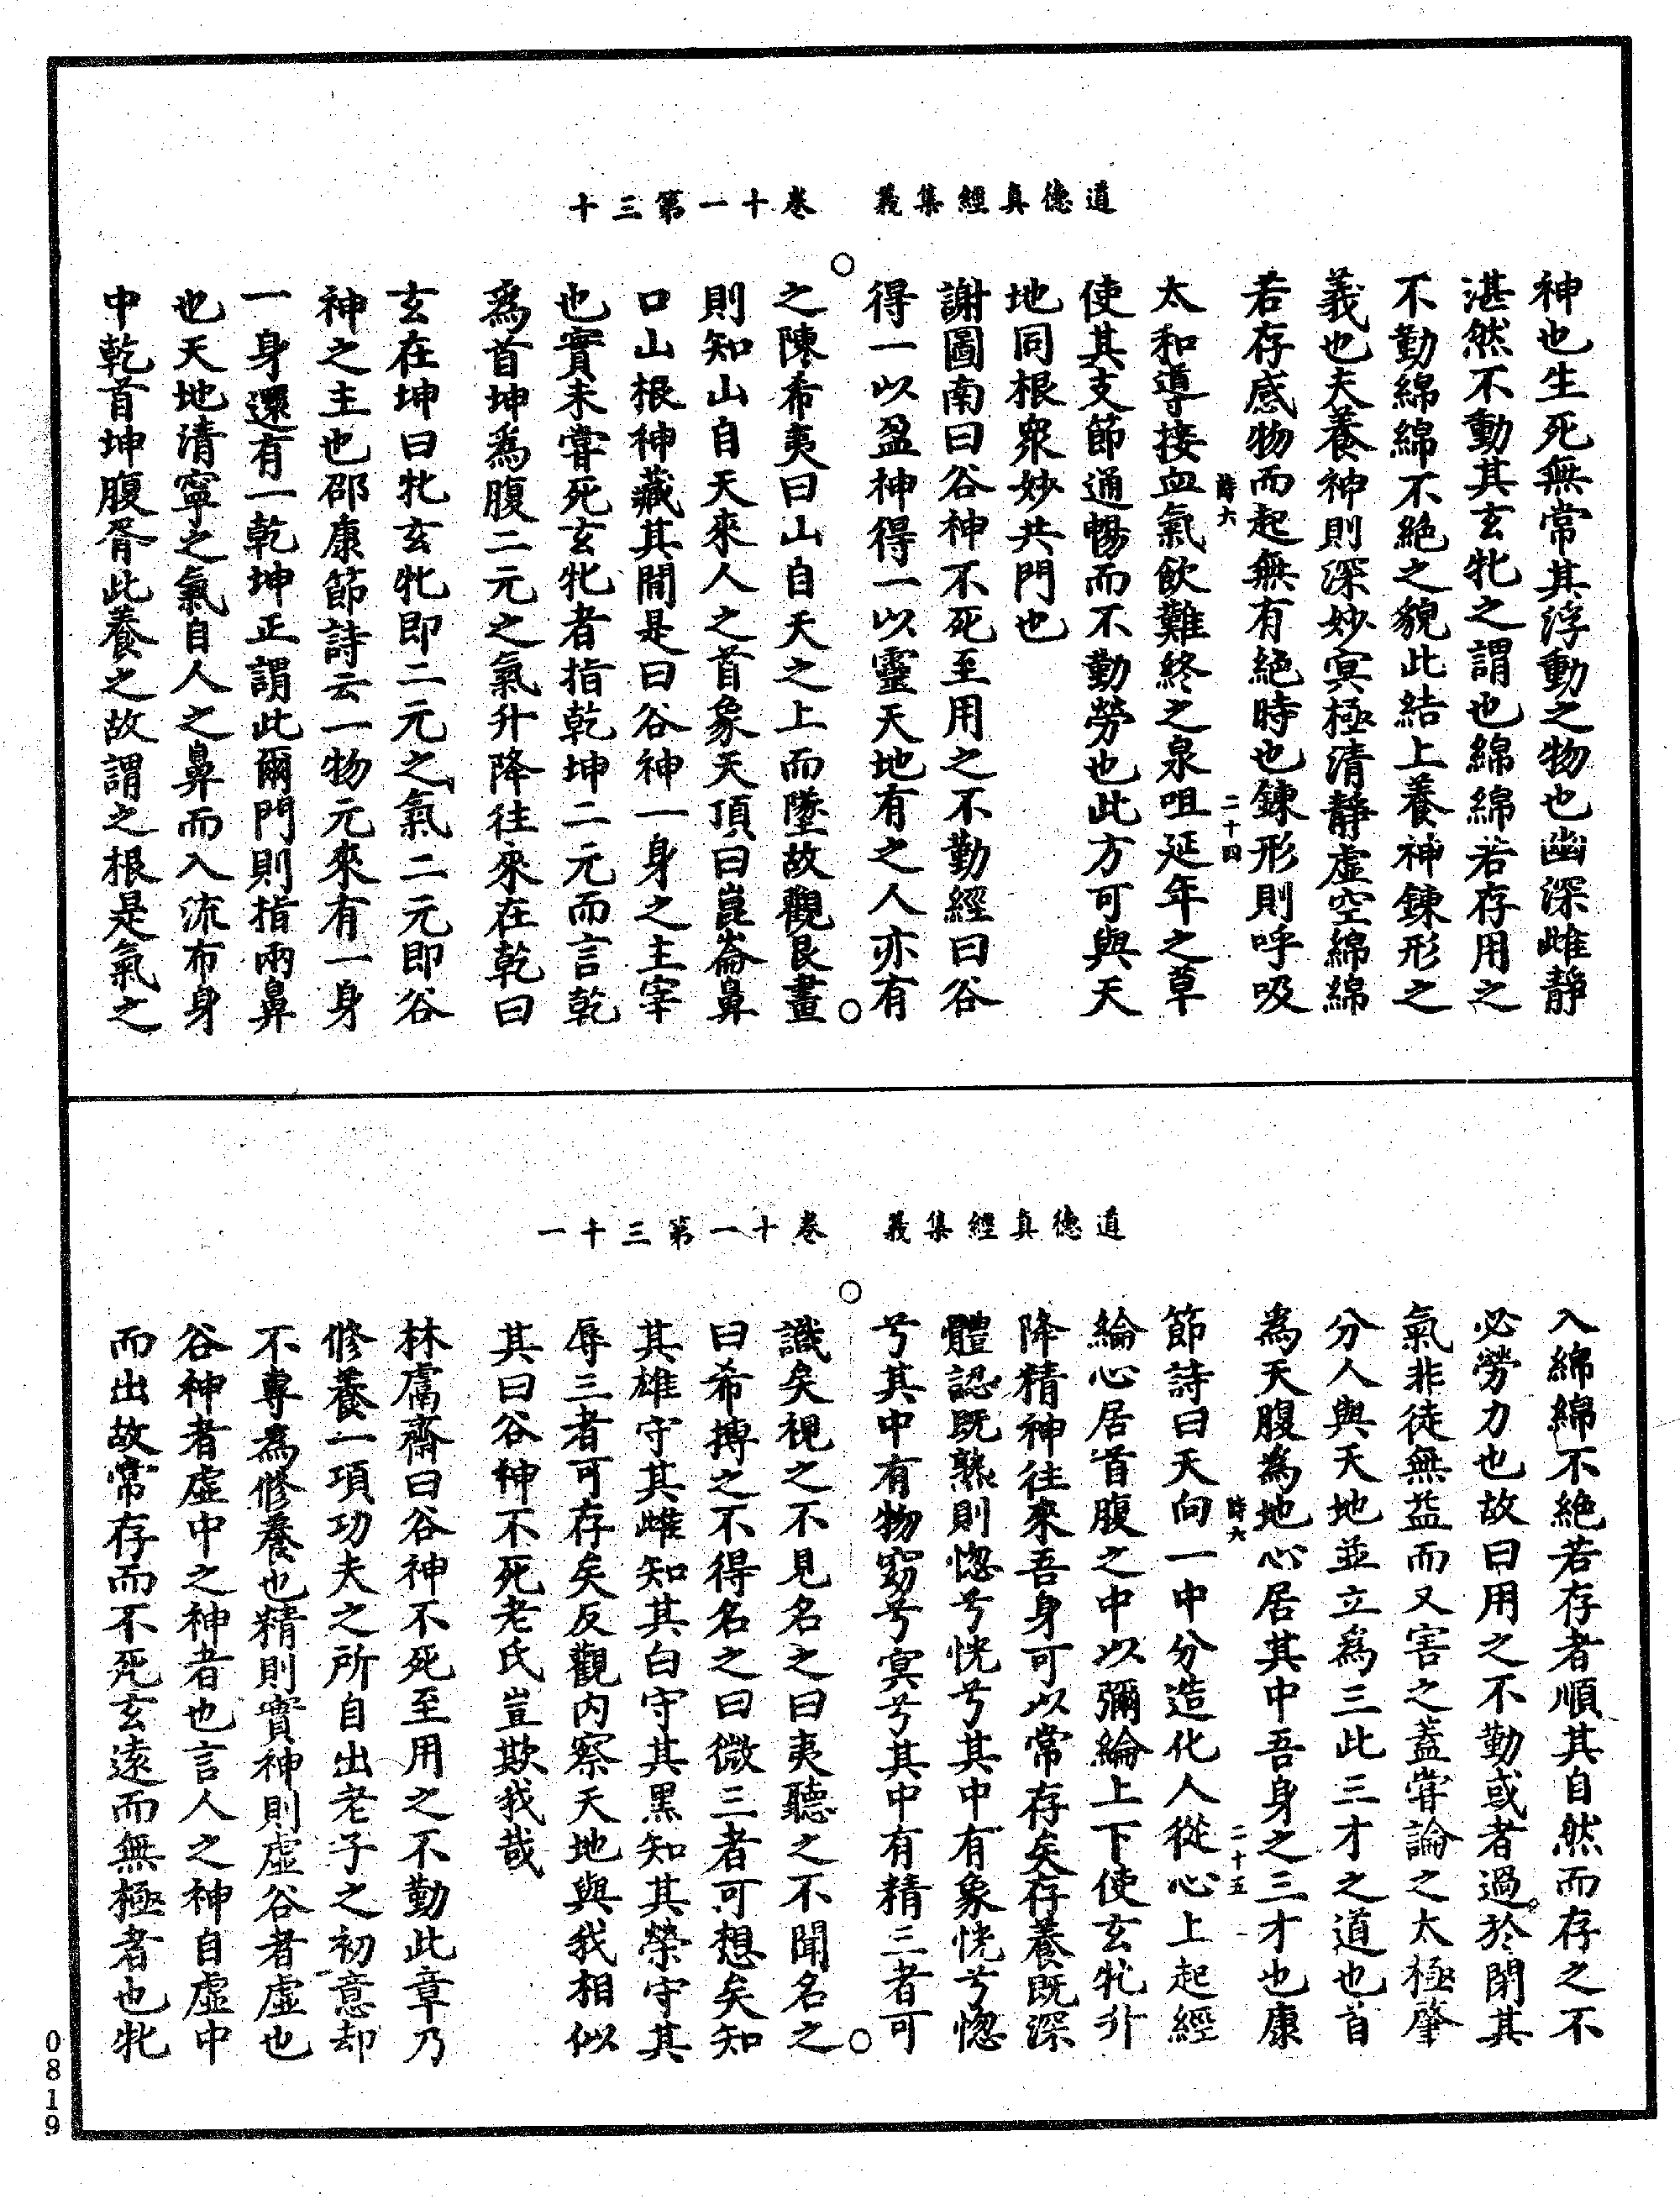 道德真經集義　卷十一第三十
神也生死無常其浮動之物也幽深雌靜
湛然不動其玄牝之謂也綿綿若存用之
不勤綿綿不絶之貌此結上養神鍊形之
義也夫養神則深妙冥極清靜虛空綿綿
若存感物而起無有絶時也鍊形則呼吸
詩六　二十四
太和導接血氣飲難終之泉咀延年之草
使其支節通暢而不勤勞也此方可與天
地同根衆妙共門也
謝圖南曰谷神不死至用之不勤經曰谷
得一以盈神得一以靈天地有之人亦有
之陳希夷曰山自天之上而墜故觀艮畫
則知山自天來人之首象天頂曰崑崙鼻
口山根神藏其間是曰谷神一身之主宰
也實未甞死玄牝者指乾坤二元而言乾
爲首坤爲腹二元之氣升降往來在乾曰
玄在坤曰牝玄牝即二元之氣二元即谷
神之主也邵康節詩云一物元來有一身
一身還有一乾坤正謂此爾門則指兩鼻
也天地清寧之氣自人之鼻而入流布身
中乾首坤腹胥此養之故謂之根是氣之
道德真經集義　卷十一第三十一
入綿綿不絶若存者順其自然而存之不
必勞力也故曰用之不勤或者過於閉其
氣非徒無益而又害之蓋甞論之太極肇
分人與天地並立爲三此三才之道也首
為天腹為地心居其中吾身之三才也康
詩六　二十五
節詩曰天向一中分造化人從心上起經
綸心居首腹之中以彌綸上下使玄牝升
降精神往來吾身可以常存矣存養既深
體認既熟則惚兮恍兮其中有象恍兮惚
兮其中有物窈兮冥兮其中有精三者可
識矣視之不見名之曰夷聽之不聞名之
曰希摶之不得名之曰微三者可想矣知
其雄守其雌知其白守其黑知其榮守其
辱三者可存矣反觀内察天地與我相似
其曰谷神不死老氏豈欺我哉
林鬳齋曰谷神不死至用之不勤此章乃
修養一項功夫之所自出老子之初意却
不專為修養也精則實神則虛谷者虛也
谷神者虛中之神者也言人之神自虛中
而出故常存而不死玄遠而無極者也牝
0819